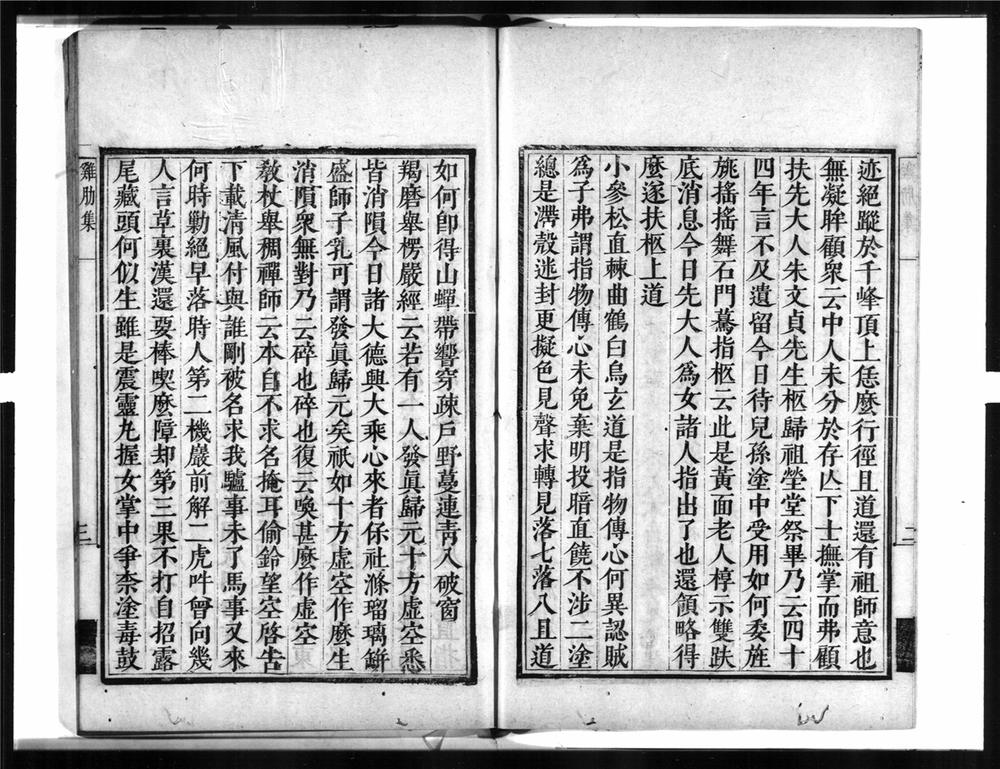 迹絕蹤於千峰頂上恁麼行徑且道還有祖師意也
無凝眸顧衆云中人未分於存亾下士撫掌而弗顧
扶先大人朱文貞先生柩歸祖塋堂祭畢乃云四十
四年言不及遺留今日待兒孫塗中受用如何委旌
旐搖搖舞石門驀指柩云此是黃面老人椁示雙趺
底消息今日先大人爲女諸人指出了也還領略得
麼遂扶柩上道
小參松直棘曲鶴白烏玄道是指物傳心何異認賊
爲子弗謂指物傳心未免棄明投暗直饒不涉二塗
總是滯殼迷封更擬色見聲求轉見落七落八且道
二
如何卽得山蟬帶響穿疎戶野蔓連靑入破窗
羯磨舉楞嚴經云若有一人發眞歸元十方虛空悉
皆消隕今日諸大德興大乘心來者保社滌瑠璃缾
盛師子乳可謂發眞歸元矣祇如十方虛空作麼生
消隕衆無對乃云碎也碎也復云喚甚麼作虛空
敎杖舉稠禪師云本自不求名掩耳偷鈴望空啓告
下載淸風付與誰剛被名求我驢事未了馬事又來
何時勦絕早落時人第二機巖前解二虎吽曾向幾
人言草裏漢還要棒喫麼障却第三果不打自招露
尾藏頭何似生雖是震靈九握女掌中爭柰塗毒鼓
雞肋集
三